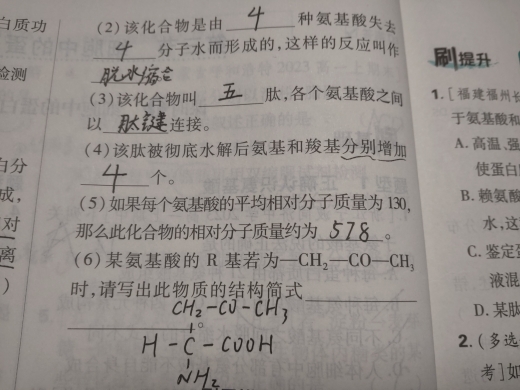 白质功
(2)该化合物是由 4 种氨基酸失去
4 分子水而形成的,这样的反应叫作
检测
脱水缩合
(3)该化合物叫 五 肽,各个氨基酸之间
以 肽键 连接。
(4)该肽被彻底水解后氨基和羧基分别增加
白分
4 个。
成,
(5)如果每个氨基酸的平均相对分子质量为130,
对
那么此化合物的相对分子质量约为 578 。
离
(6)某氨基酸的R基若为—CH₂—CO—CH₃
)
时,请写出此物质的结构简式
CH₂-CO-CH₃
。
H-C-COOH
NH₂
刷提升
1.[福建福州长
于氨基酸和
A.高温、强
使蛋白
B.赖氨酸
水,这
C.鉴定蛋
液混
D.某肽
2.(多选
考]如